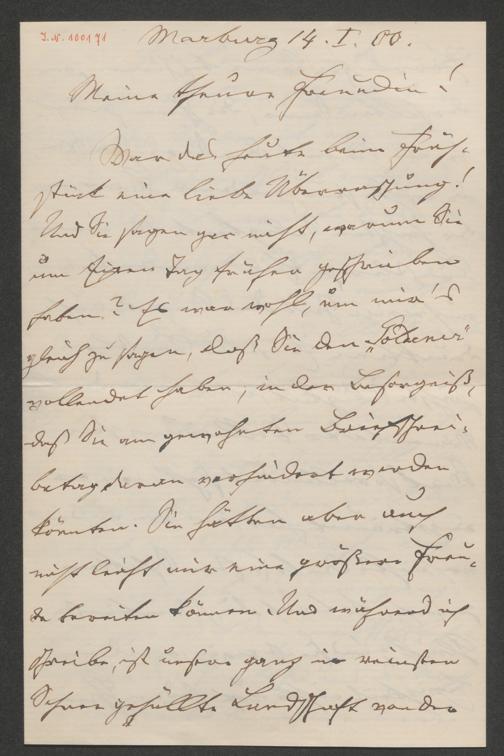 J.N. 100171
Marburg 14. I. 00.
Meine theure Freundin!
War das heute beim Früh-
stück eine liebe Überraschung!
Und Sie sagen gar nicht, warum Sie
um Tag früher geschrieben
haben? Es war wohl, um mir's
gleich zu sagen, daß Sie den „Söldener"
vollendet haben, in der Besorgniß,
daß Sie am gewohnten Briefschrei-
betag daran verhindert werden
könnten. Sie hätten aber auch
nicht leicht mir eine größere Freu-
de bereiten können. Und während ich
schreibe, ist unsere ganz in reinsten
Schnee gehüllte Landschaft von der